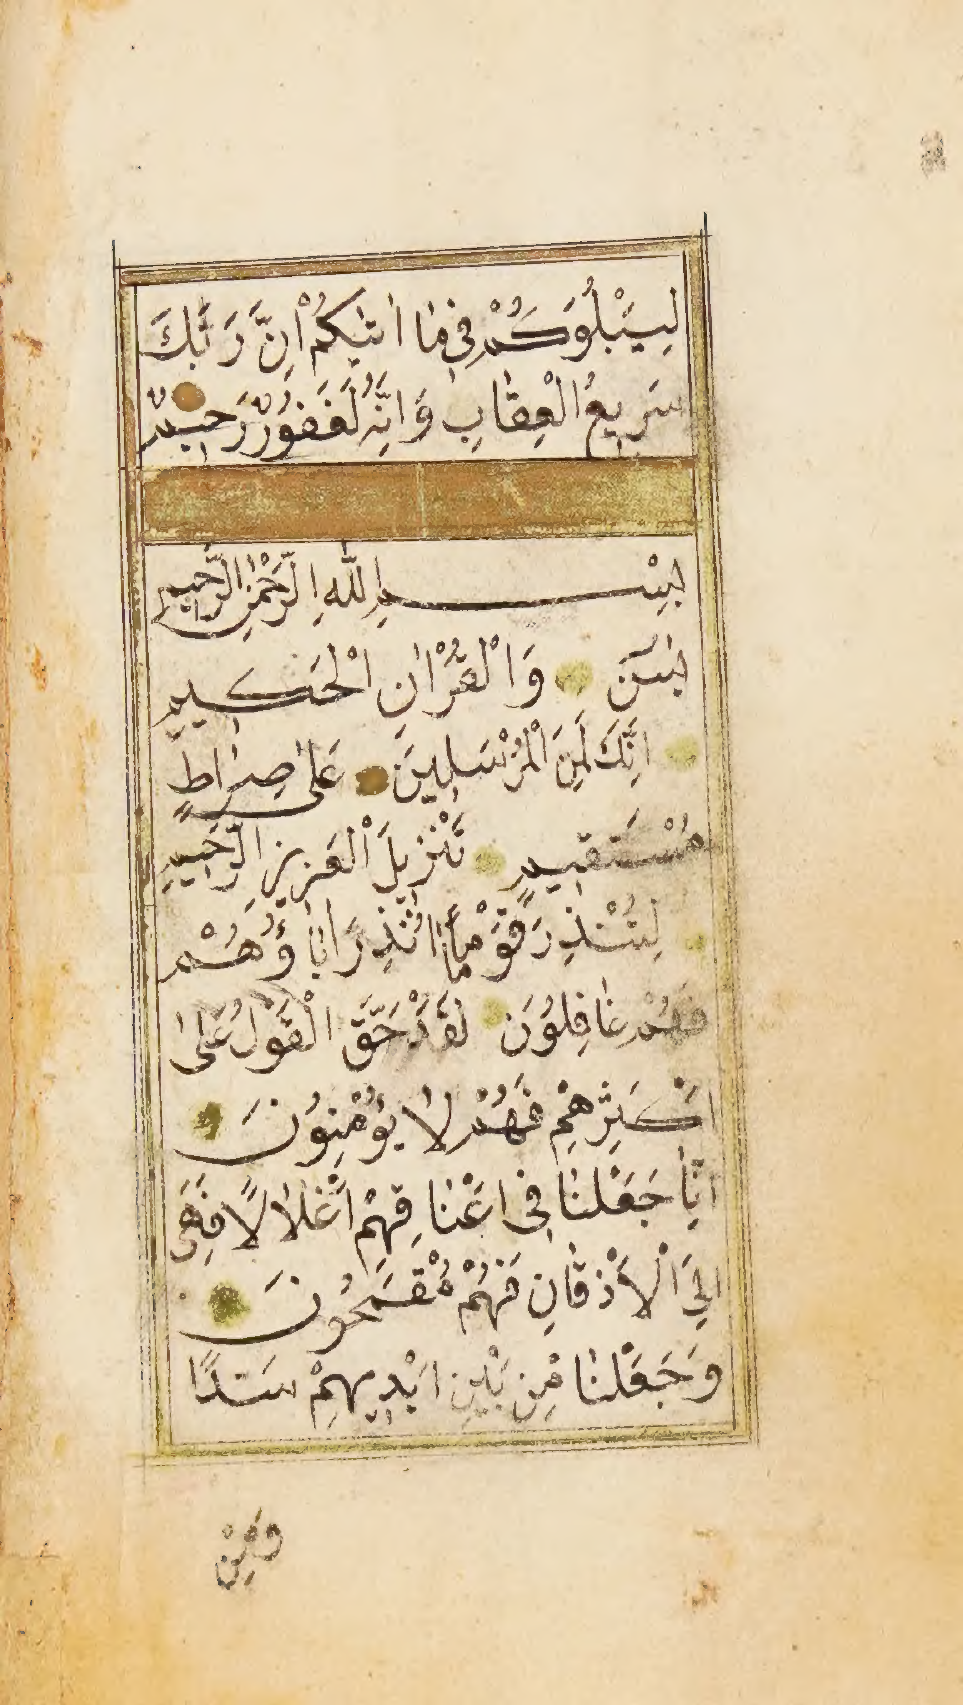 لِيَبْلُوَكُمْ فِى مٰا اٰتٰيكُمْ اِنَّ رَبَّكَ
سَرِيعُ الْعِقٰابِ وَاِنَّهُ لَغَفُورٌ رَحِيمٌ
بِسْمِ اللّٰهِ الرَّحْمٰنِ الرَّحِيمِ
يٰسٓنَ وَالْقُرْاٰنِ الْحَكِيمِ
اِنَّكَ لَمِنَ الْمُرْسَلِينَ عَلىٰ صِرٰاطٍ
مُسْتَقِيمٍ تَنْزِيلَ الْعَزِيزِ الرَّحِيمِ
لِتُنْذِرَ قَوْمًا مٰا اُنْذِرَ اٰبٰاؤُهُمْ
فَهُمْ غٰافِلُونَ لَقَدْ حَقَّ الْقَوْلُ عَلىٰ
اَكْثَرِهِمْ فَهُمْ لٰا يُؤْمِنُونَ
اِنّٰا جَعَلْنٰا فِى اَعْنٰاقِهِمْ اَغْلٰالًا فَهِىَ
اِلَى الْاَذْقٰانِ فَهُمْ مُقْمَحُونَ
وَجَعَلْنٰا مِنْ بَيْنِ اَيْدِيهِمْ سَدًّا
وَمِنْ